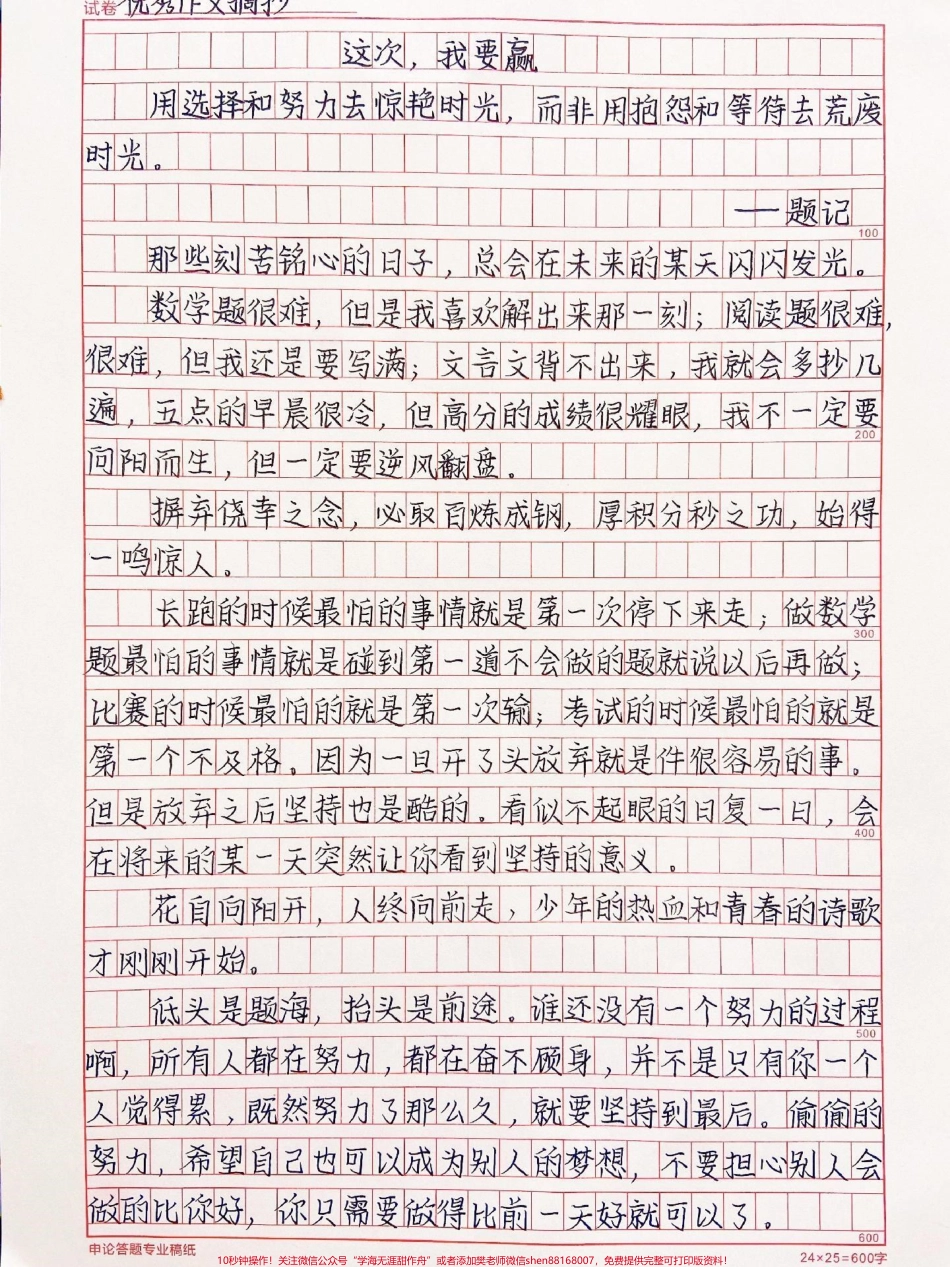 试卷 优秀作文摘抄
这次，我要赢
用选择和努力去惊艳时光，而非用抱怨和等待去荒废
时光。
——题记
100
那些刻苦铭心的日子，总会在未来的某天闪闪发光。
数学题很难，但是我喜欢解出来那一刻；阅读题很难，
很难，但我还是要写满；文言文背不出来，我就会多抄几
遍，五点的早晨很冷，但高分的成绩很耀眼，我不一定要
200
向阳而生，但一定要逆风翻盘。
摒弃侥幸之念，必取百炼成钢，厚积分秒之功，始得
一鸣惊人。
长跑的时候最怕的事情就是第一次停下来走；做数学
300
题最怕的事情就是碰到第一道不会做的题就说以后再做；
比赛的时候最怕的就是第一次输；考试的时候最怕的就是
第一个不及格。因为一旦开了头放弃就是件很容易的事。
但是放弃之后坚持也是酷的。看似不起眼的日复一日，会
400
在将来的某一天突然让你看到坚持的意义。
花自向阳开，人终向前走，少年的热血和青春的诗歌
才刚刚开始。
低头是题海，抬头是前途。谁还没有一个努力的过程
500
啊，所有人都在努力，都在奋不顾身，并不是只有你一个
人觉得累，既然努力了那么久，就要坚持到最后。偷偷的
努力，希望自己也可以成为别人的梦想，不要担心别人会
做的比你好，你只需要做得比前一天好就可以了。
600
申论答题专业稿纸
24×25=600字
10秒钟操作！关注微信公众号“学海无涯甜作舟”或者添加樊老师微信shen88168007，免费提供完整可打印版资料！